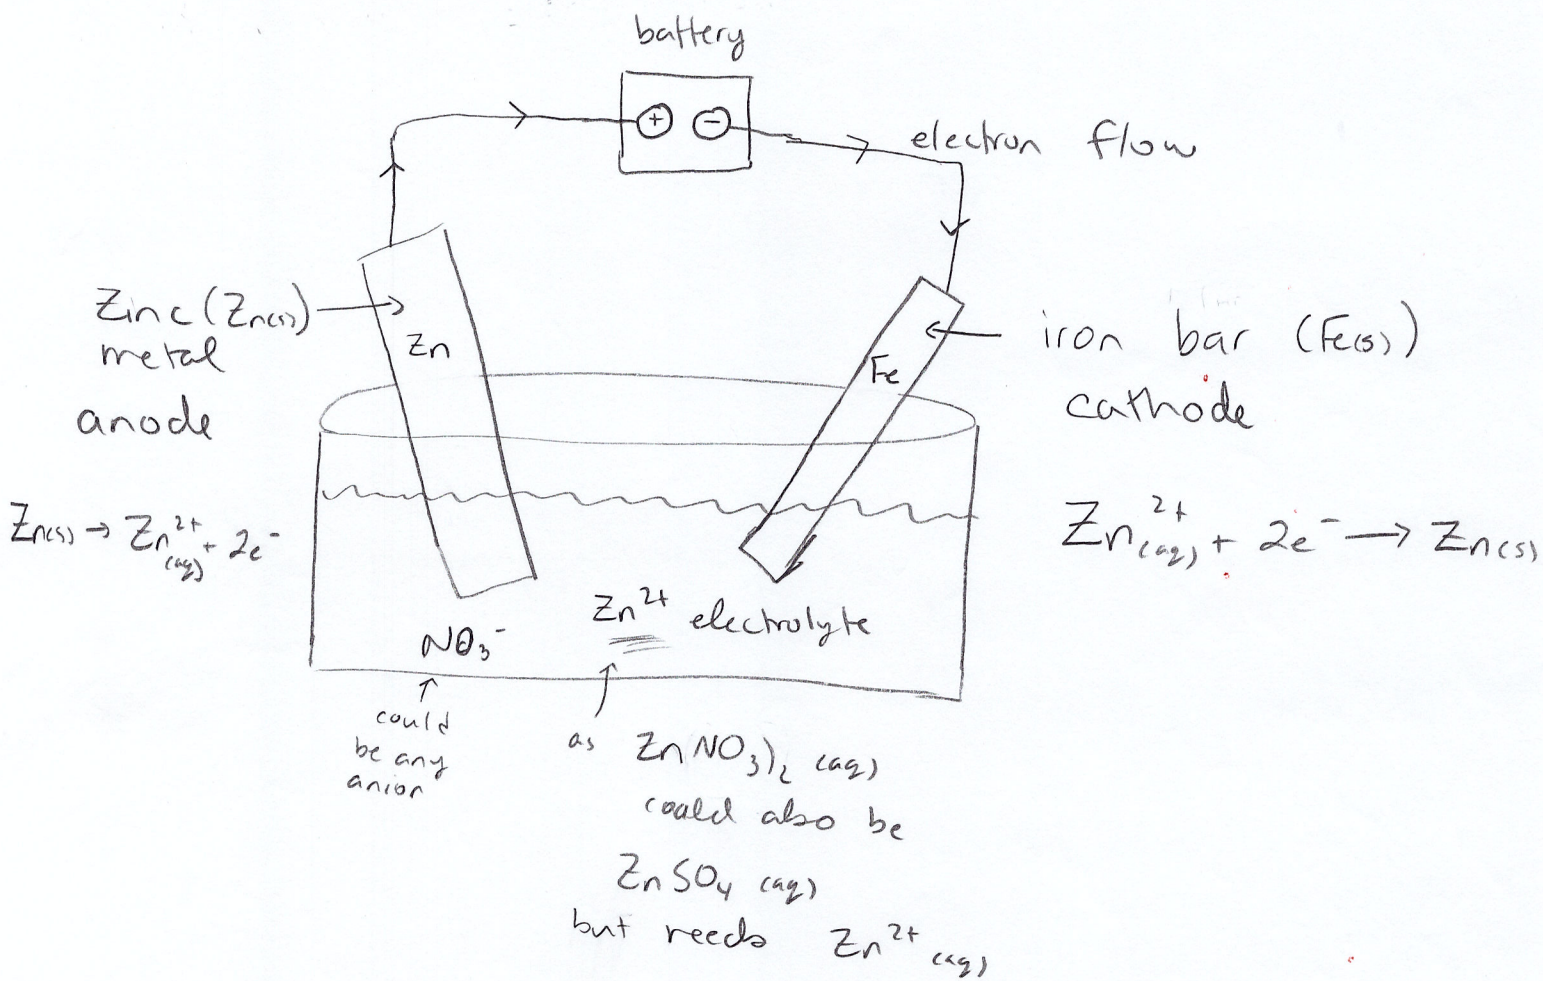 battery
+ −
electron flow
Zinc (Zn(s))
metal
anode
Zn
Fe
iron bar (Fe(s))
cathode
Zn(s) → Zn²⁺(aq) + 2e⁻
Zn²⁺(aq) + 2e⁻ → Zn(s)
NO₃⁻
Zn²⁺ electrolyte
could
be any
anion
as ZnNO₃)₂ (aq)
could also be
ZnSO₄ (aq)
but needs Zn²⁺(aq)